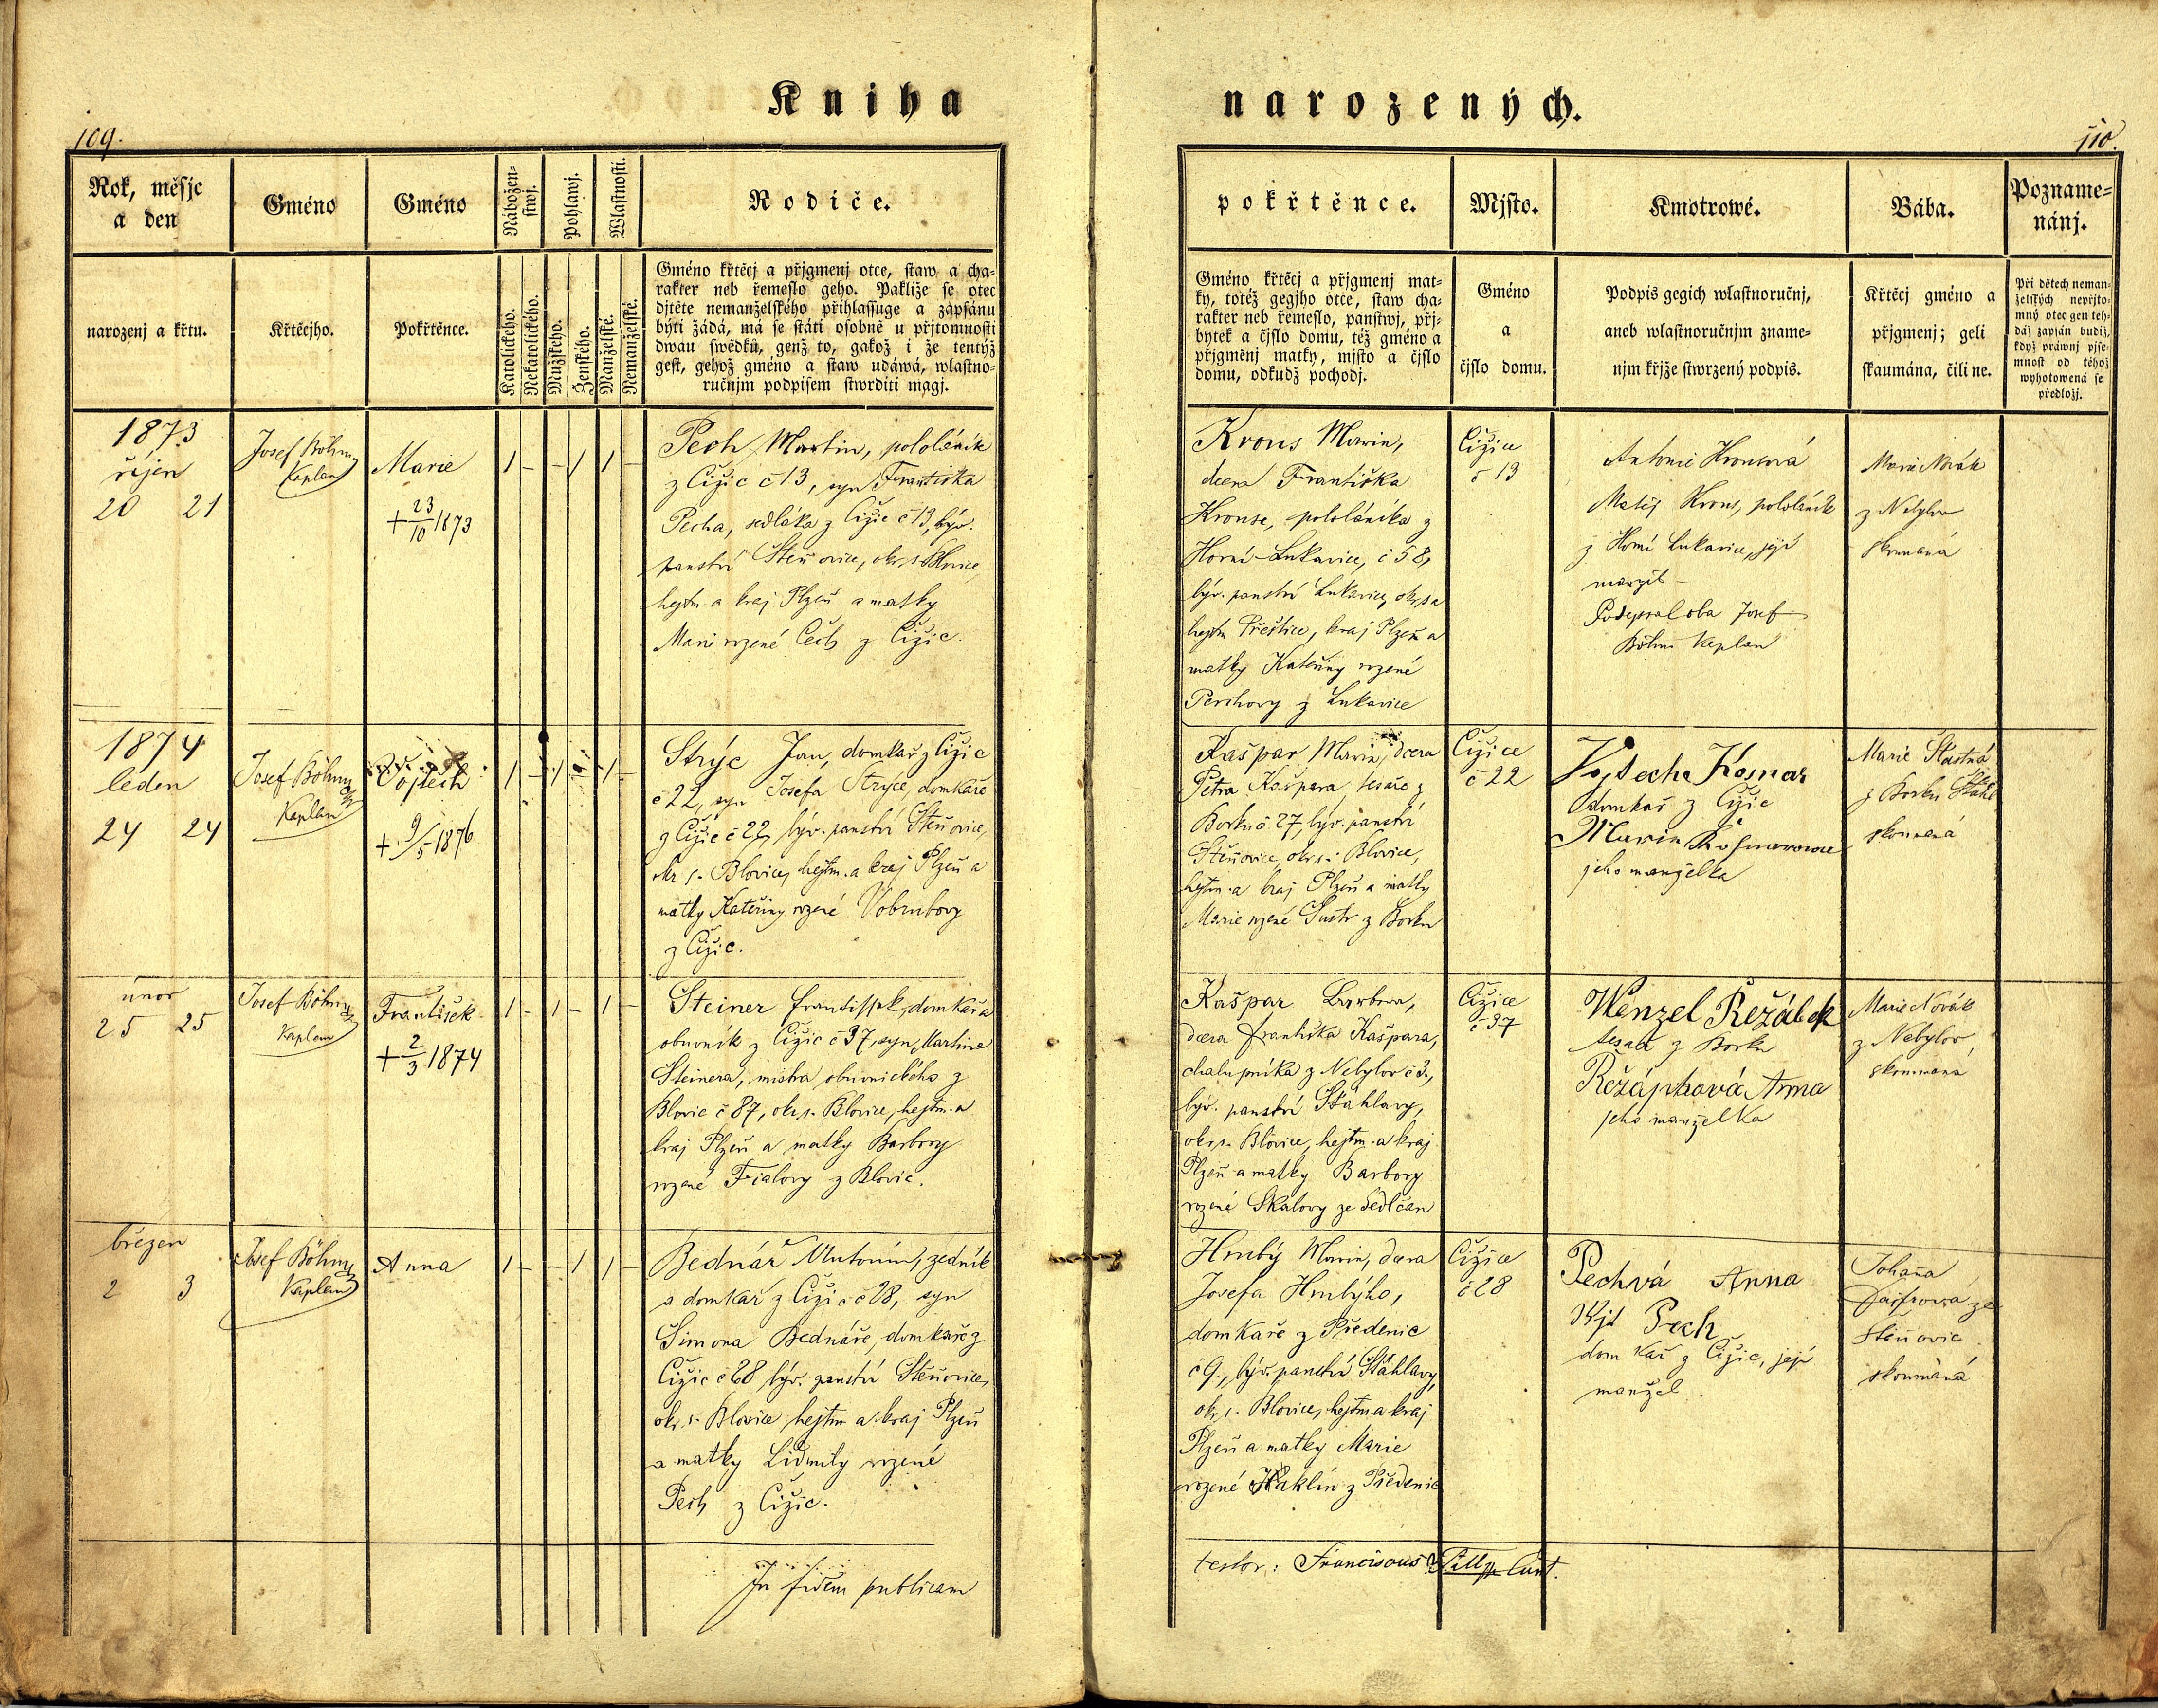 Kniha narozených.
109.
110.
Rok, měsjc
a den
Gméno
Gméno
Nábožen-
stwj.
Pohlawj.
Wlastnosti.
Rodiče.
pokřtěnce.
Mjsto.
Kmotrowé.
Bába.
Pozname-
nánj.
narozenj a křtu.
Křtěcjho.
Pokřtěnce.
Katolického.
Nekatolického.
Mužského.
Ženského.
Manželské.
Nemanželské.
Gméno křtěcj a přjgmenj otce, staw a cha-
rakter neb řemeslo geho. Pakliže se otec
djtěte nemanželského přihlassuge a zapsánu
býti žádá, má se státi osobně u přjtomnosti
dwau swědků, genž to, gakož i že tentýž
gest, gehož gméno a staw udáwá, wlastno-
ručnjm podpisem stwrditi magj.
Gméno křtěcj a přjgmenj mat-
ky, totéž gegjho otce, staw cha-
rakter neb řemeslo, panstwj, přj-
bytek a čjslo domu, též gméno a
přjgměnj matky, mjsto a čjslo
domu, odkudž pochodj.
Gméno
a
čjslo domu.
Podpis gegich wlastnoručnj,
aneb wlastnoručnjm zname-
njm křjže stwrzený podpis.
Křtěcj gméno a
přjgmenj; geli
skaumána, čili ne.
Při dětech neman-
želských nepřjto-
mný otec gen teh-
dáž zapsán budiž,
když práwnj pjse-
mnost od téhož
wyhotowená se
předložj.
1873
říjen
20 21
Josef Böhm
Kaplan
Marie
+ 23/10 1873
1 – – 1 1 –
Pech Martin, pololáník
z Čižic č 13, syn Františka
Pecha, sedláka z Čižic č 13, býv.
panství Štěňovice, okr. s. Blovice
hejtm. a kraj Plzeň a matky
Marie rozené Čech z Čižic.
Krous Marie,
dcera Františka
Krouse, pololáníka z
Horní Lukavice, č 58,
býv. panství Lukavice, okr. s a
hejtm Přeštice, kraj Plzeň a
matky Kateřiny rozené
z Lukavice
Čižice
č 13
Antonie Krousová
Matěj Krous, pololáník
z Horní Lukavice, její
manžel
Podepsal oba Josef
Böhm Kaplan
Marie Novák
z Nebylov
skoumaná
1874
leden
24 24
Josef Böhm
Kaplan
Vojtěch
+ 9/5 1876
1 – 1 – 1 –
Strýc Jan, domkař z Čižic
č 22, syn Josefa Strýce, domkaře
z Čižic č 22, býv. panství Štěňovice,
okr s. Blovice, hejtm. a kraj Plzeň a
matky Kateřiny rozené Vobrubovy
z Čižic.
Kašpar Marie, dcera
Petra Kašpara, tesaře z
Borku č 27, býv. panství
Štěňovice, okr. s. Blovice,
hejtm. a kraj Plzeň a matky
Marie rozené Šustr z Borku
Čižice
č 22
Vojtech Kosnar
domkař z Čižic
Marie Kosnarowa
jeho manželka
Marie Šťastná
z Borku
skoumaná
únor
25 25
Josef Böhm
Kaplan
František
+ 2/3 1874
1 – 1 – 1 –
Steiner Frantissek, domkář a
obuvník z Čižic č 37, syn Martina
Steinera, mistra obuvnického z
Blovic č 87, okr. s. Blovice, hejtm. a
kraj Plzeň a matky Barbory
rozené Fialovy z Blovic.
Kašpar Barbora,
dcera Františka Kašpara,
chalupníka z Nebylov č 3,
býv. panství Šťáhlavy,
okr. s. Blovice, hejtm. a kraj
Plzeň a matky Barbory
rozené Skálovy ze Sedlčan
Čižice
č 37
Wenzel Řežábek
tesař z Borku
Anna
jeho manželka
Marie Novák
z Nebylov
skoumaná
březen
2 3
Josef Böhm
Kaplan
Anna
1 – – 1 1 –
Bednář Antonín, zedník
a domkař z Čižic č 28, syn
Šimona Bednáře, domkaře z
Čižic č 28, býv. panství Štěňovice,
okr. s. Blovice hejtm a kraj Plzeň
a matky Lidmily rozené
Pech z Čižic.
Hrubý Marie, dcera
Josefa Hrubýho,
domkaře z Předenic
č 9., býv. panství Šťáhlavy,
okr. s. Blovice, hejtm a kraj
Plzeň a matky Marie
rozené Haklín z Předenic
Čižice
č 28
Pechvá Anna
Pech
domkař z Čižic, její
manžel.
Johana
ze
Štěňovic
skoumaná
In fidem publicam
testor: Franciscus